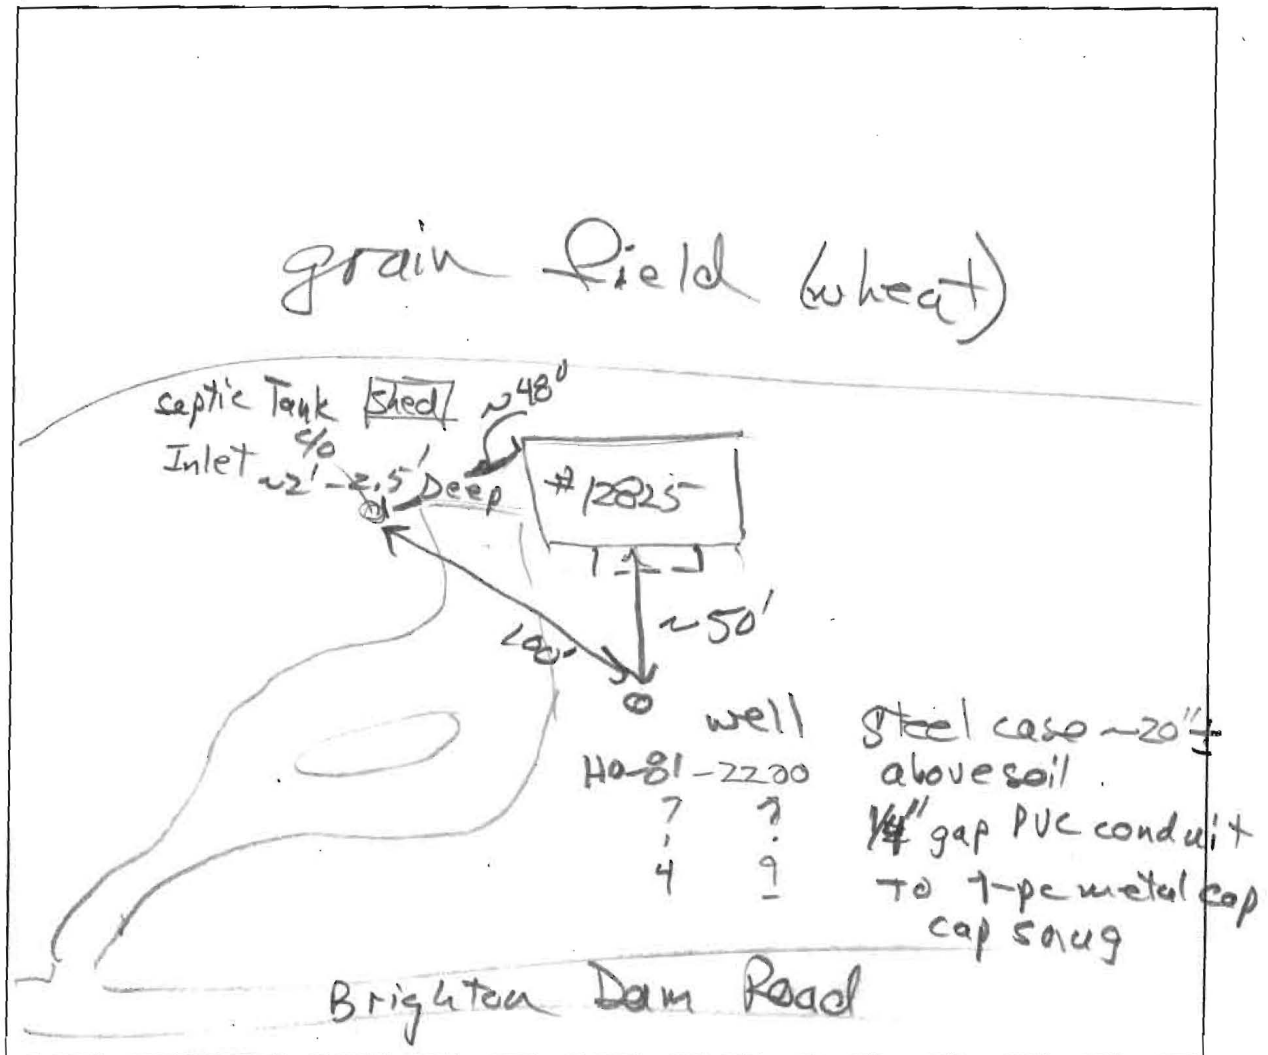 grain field (wheat)
septic Tank
shed
~48'
c/o
Inlet ~2'-2.5' Deep
#12825
~50'
100'
well
HO-81-2200
? ?
4 9
Steel case ~20"±
above soil.
1/4" gap PVC conduit
to 1-pc metal cap
cap snug
Brighton Dam Road